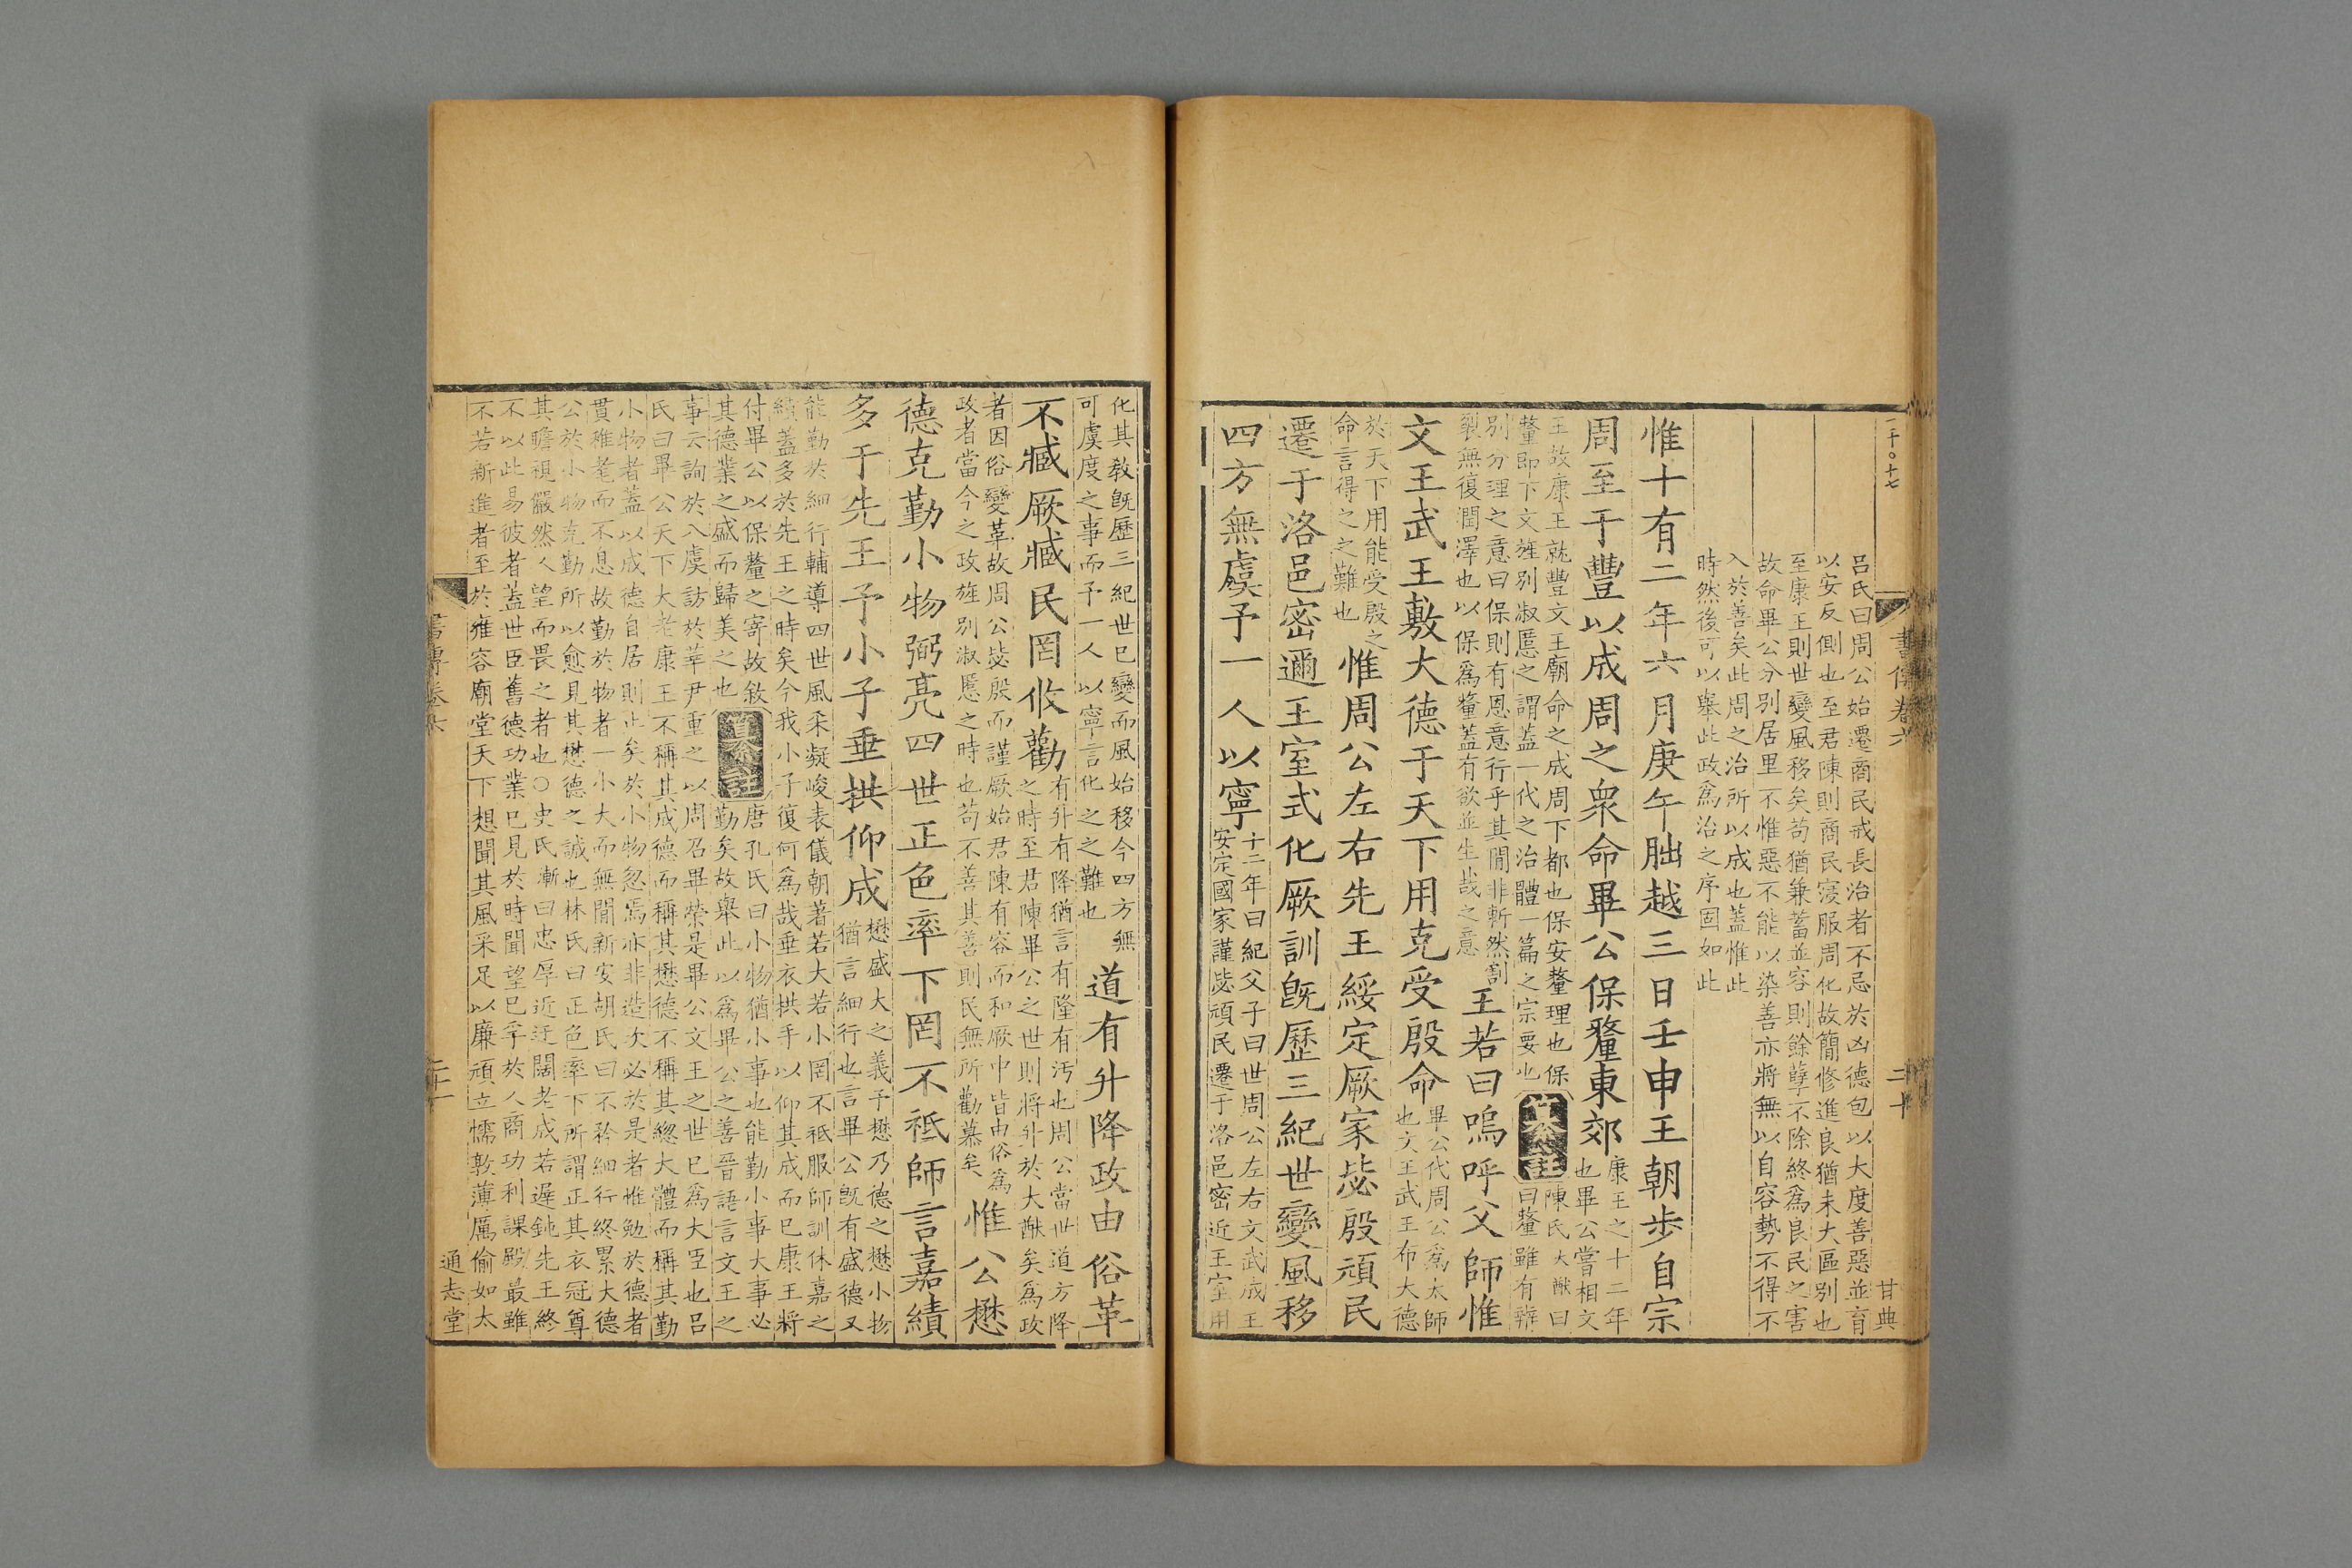 二千〇十七
書傳卷六
二十
甘典
呂氏曰周公始遷商民戒長治者不忌於凶德包以大度善惡並育
以安反側也至君陳則商民寖服周化故簡修進良猶未大區別也
至康王則世變風移矣苟猶兼蓄並容則餘孽不除終爲良民之害
故命畢公分別居里不惟惡不能以染善亦將無以自容勢不得不
入於善矣此周之治所以成也蓋惟此
時然後可以舉此政爲治之序固如此
惟十有二年六月庚午朏越三日壬申王朝步自宗
周至于豐以成周之眾命畢公保釐東郊
康王之十二年
也畢公嘗相文
王故康王就豐文王廟命之成周下都也保安釐理也保
釐即下文旌別淑慝之謂蓋一代之治體一篇之宗要也
纂註
陳氏大猷曰
曰釐雖有辨
別分理之意曰保則有恩意行乎其閒非斬然割
裂無復潤澤也以保爲釐蓋有欲並生哉之意
王若曰嗚呼父師惟
文王武王敷大德于天下用克受殷命
畢公代周公爲太師
也文王武王布大德
於天下用能受殷之
命言得之之難也
惟周公左右先王綏定厥家毖殷頑民
遷于洛邑密邇王室式化厥訓旣歷三紀世變風移
四方無虞予一人以寧
十二年曰紀父子曰世周公左右文武成王
安定國家謹毖頑民遷于洛邑密近王室用
化其敎旣歷三紀世已變而風始移今四方無
可虞度之事而予一人以寧言化之之難也
道有升降政由俗革
不臧厥臧民罔攸勸
有升有降猶言有隆有汚也周公當世道方降
之時至君陳畢公之世則將升於大猷矣爲政
者因俗變革故周公毖殷而謹厥始君陳有容而和厥中皆由俗爲
政者當今之政旌別淑慝之時也苟不善其善則民無所勸慕矣
惟公懋
德克勤小物弼亮四世正色率下罔不祗師言嘉績
多于先王予小子垂拱仰成
懋盛大之義予懋乃德之懋小物
猶言細行也言畢公旣有盛德又
能勤於細行輔導四世風采凝峻表儀朝著若大若小罔不祗服師訓休嘉之
績蓋多於先王之時矣今我小子復何爲哉垂衣拱手以仰其成而已康王將
付畢公以保釐之寄故敘
其德業之盛而歸美之也
纂註
唐孔氏曰小物猶小事也能勤小事大事必
勤矣故舉此以爲畢公之善晉語言文王之
事云詢於八虞訪於莘尹重之以周召畢榮是畢公文王之世已爲大臣也呂
氏曰畢公天下大老康王不稱其成德而稱其懋德不稱其緫大體而稱其勤
小物者蓋以成德自居則止矣於小物忽焉亦非造次必於是者惟勉於德者
貫雖耄而不息故勤於物者一小大而無閒新安胡氏曰不矜細行終累大德
公於小物克勤所以愈見其懋德之誠也林氏曰正色率下所謂正其衣冠尊
其瞻視儼然人望而畏之者也○史氏漸曰忠厚近迂闊老成若遲鈍先王終
不以此易彼者蓋世臣舊德功業已見於時聞望已孚於人商功利課殿最雖
不若新進者至於雍容廟堂天下想聞其風采足以廉頑立懦敦薄厲偷如太
書傳卷六
二十一
通志堂